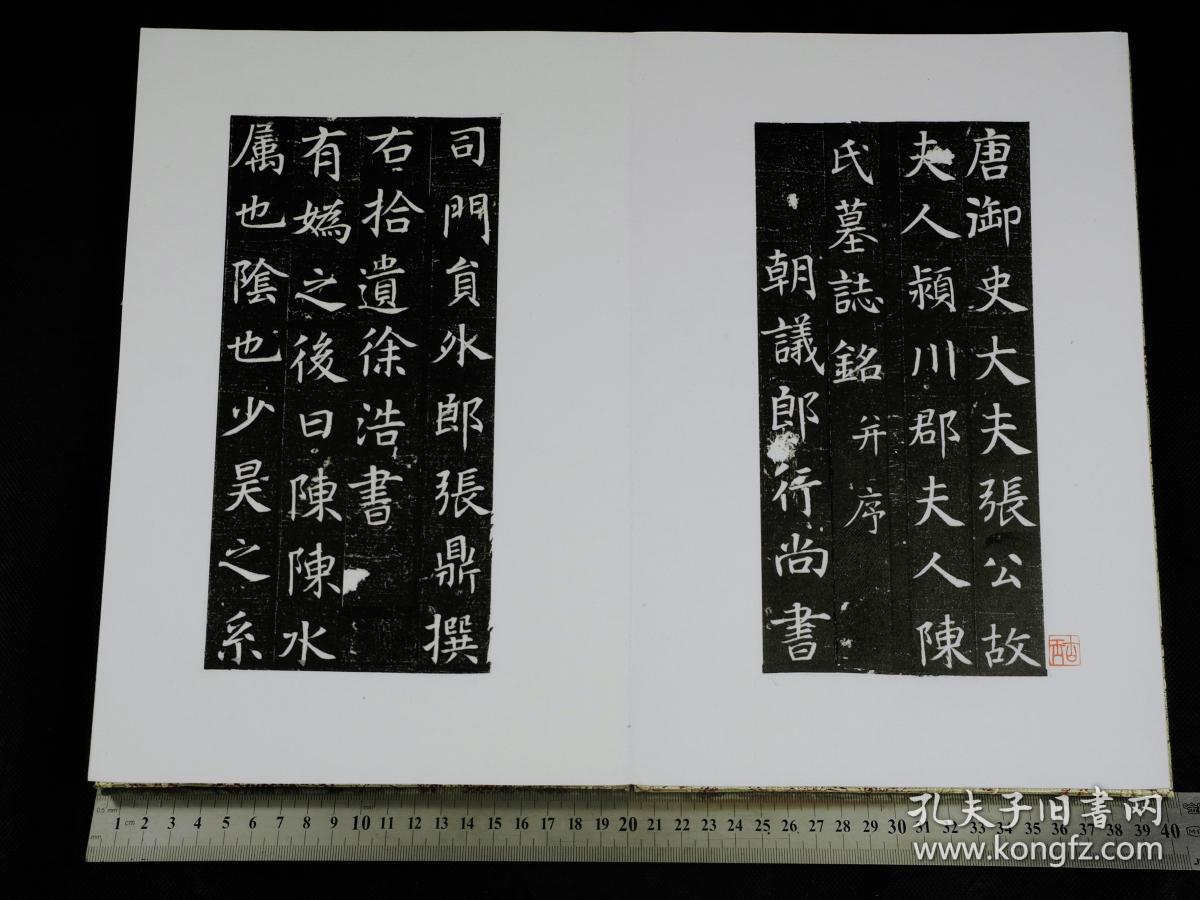 唐御史大夫張公故
夫人潁川郡夫人陳
氏墓誌銘 并序
朝議郎行尚書
司門員外郎張鼎撰
右拾遺徐浩書
有嬀之後曰陳陳水
属也陰也少昊之系
0.5 mm
1 cm 2 3 4 5 6 7 8 9 10 11 12 13 14 15 16 17 18 19 20 21 22 23 24 25 26 27 28 29 30 31 32 33 34 35 36 37 38 39 40
mm
孔夫子旧書网
www.kongfz.com